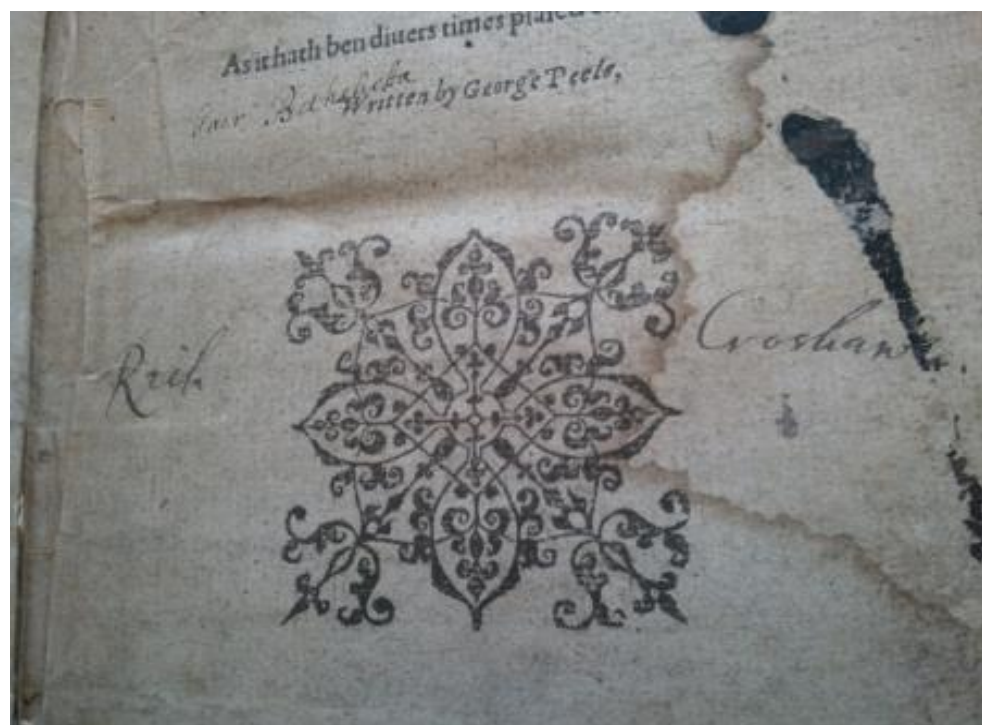 As it hath ben diuers times plaied
fair Bethsheba
Written by George Peele,
Rich Croshaw